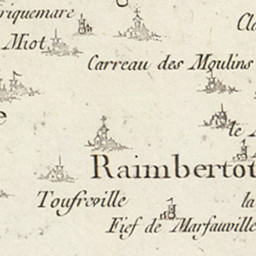 riquemare
Cla
Miot
Carreau des Moulins
e
le
Raimbertot
Toufreville
la
Fief de Marfauville